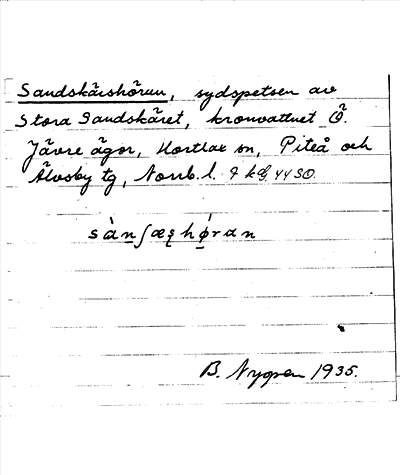 Sandskärshörun, sydspetsen av
Stora Sandskäret, kronvattnet Ö.
Jävre ägor, Hortlax sn, Piteå och
Älvsby tg, Norrb. l.
B. Nygren 1935.